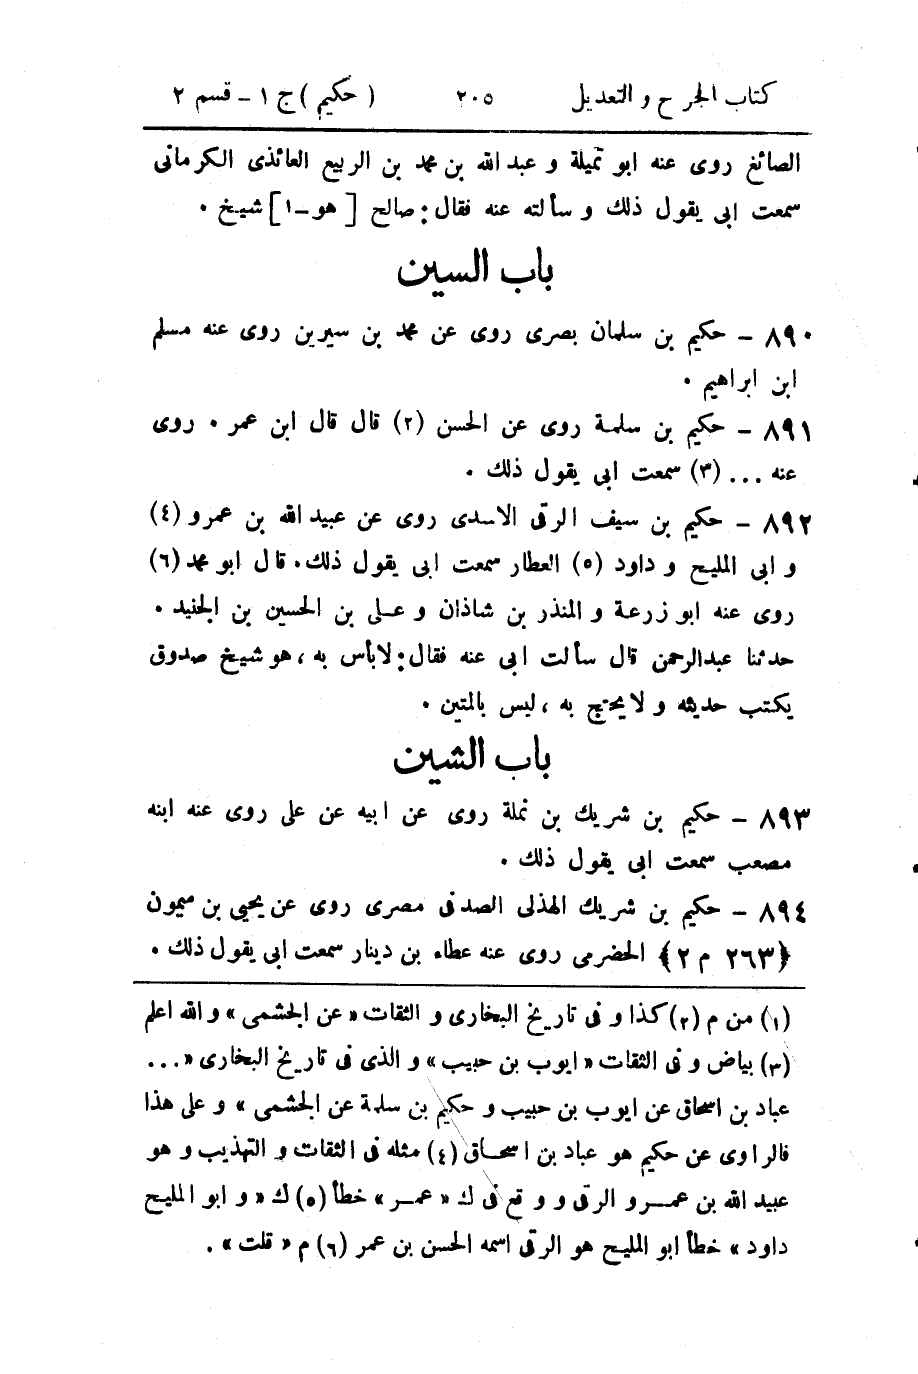 كتاب الجرح والتعديل ٢٠٥ (حكيم) ج ١ - قسم ٢
الصائغ روى عنه ابو تميلة و عبد الله بن محمد بن الربيع العائذى الكرمانى
سمعت ابى يقول ذلك و سألته عنه فقال: صالح [هو-١] شيخ .
باب السين
٨٩٠ - حكيم بن سلمان بصرى روى عن محمد بن سيرين روى عنه مسلم
ابن ابراهيم .
٨٩١ - حكيم بن سلمة روى عن الحسن (٢) قال قال ابن عمر . روى
عنه ... (٣) سمعت ابى يقول ذلك .
٨٩٢ - حكيم بن سيف الرقى الاسدى روى عن عبيد الله بن عمرو (٤)
و ابى المليح و داود (٥) العطار سمعت ابى يقول ذلك. قال ابو محمد (٦)
روى عنه ابو زرعة و المنذر بن شاذان و على بن الحسين بن الجنيد .
حدثنا عبدالرحمن قال سألت ابى عنه فقال: لابأس به ، هو شيخ صدوق
يكتب حديثه و لايحتج به ، ليس بالمتين .
باب الشين
٨٩٣ - حكيم بن شريك بن نملة روى عن ابيه عن على روى عنه ابنه
مصعب سمعت ابى يقول ذلك .
٨٩٤ - حكيم بن شريك الهذلى الصدفى مصرى روى عن يحيى بن ميمون
﴿٢٦٣ م ٢﴾ الحضرمى روى عنه عطاء بن دينار سمعت ابى يقول ذلك .
(١) من م (٢) كذا و فى تاريخ البخارى و الثقات « عن الجشمى » و الله اعلم
(٣) بياض و فى الثقات « ايوب بن حبيب » و الذى فى تاريخ البخارى « ...
عباد بن اسحاق عن ايوب بن حبيب و حكيم بن سلمة عن الجشمى » و على هذا
فالراوى عن حكيم هو عباد بن اسحاق (٤) مثله فى الثقات و التهذيب و هو
عبيد الله بن عمرو الرقى و وقع فى ك « عمر » خطأ (٥) ك « و ابو المليح
داود » خطأ ابو المليح هو الرقى اسمه الحسن بن عمر (٦) م « قلت » .